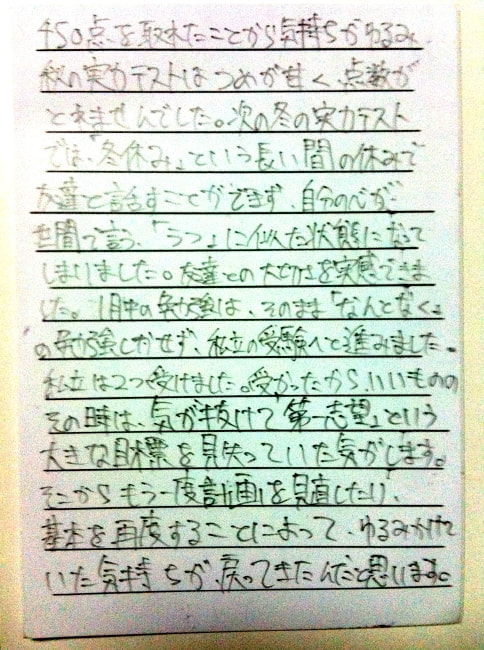 450点を取れたことから気持ちがゆるみ、
秋の実力テストはつめが甘く、点数が
とれませんでした。次の冬の実力テスト
では、「冬休み」という長い間の休みで
友達と話すことができず、自分の心が
世間で言う、「うつ」に似た状態になって
しまいました。友達との大切さを実感できま
した。1月中の勉強は、そのまま「なんとなく」
の勉強しかせず、私立の受験へと進みました。
私立は2つ受けました。受かったから、いいものの
その時は、気が抜けて「第一志望」という
大きな目標を見失っていた気がします。
そこからもう一度計画を見直したり、
基本を再度することによって、ゆるみかけて
いた気持ちが戻ってきたんだと思います。